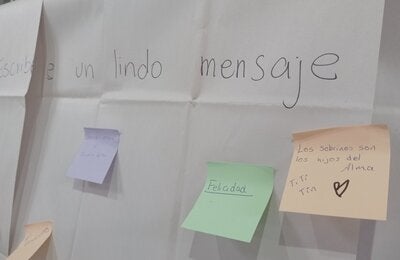 Escribe un lindo mensaje
Felicidad
Los sobrinos son
los hijos del
Alma
TiTi
Tin